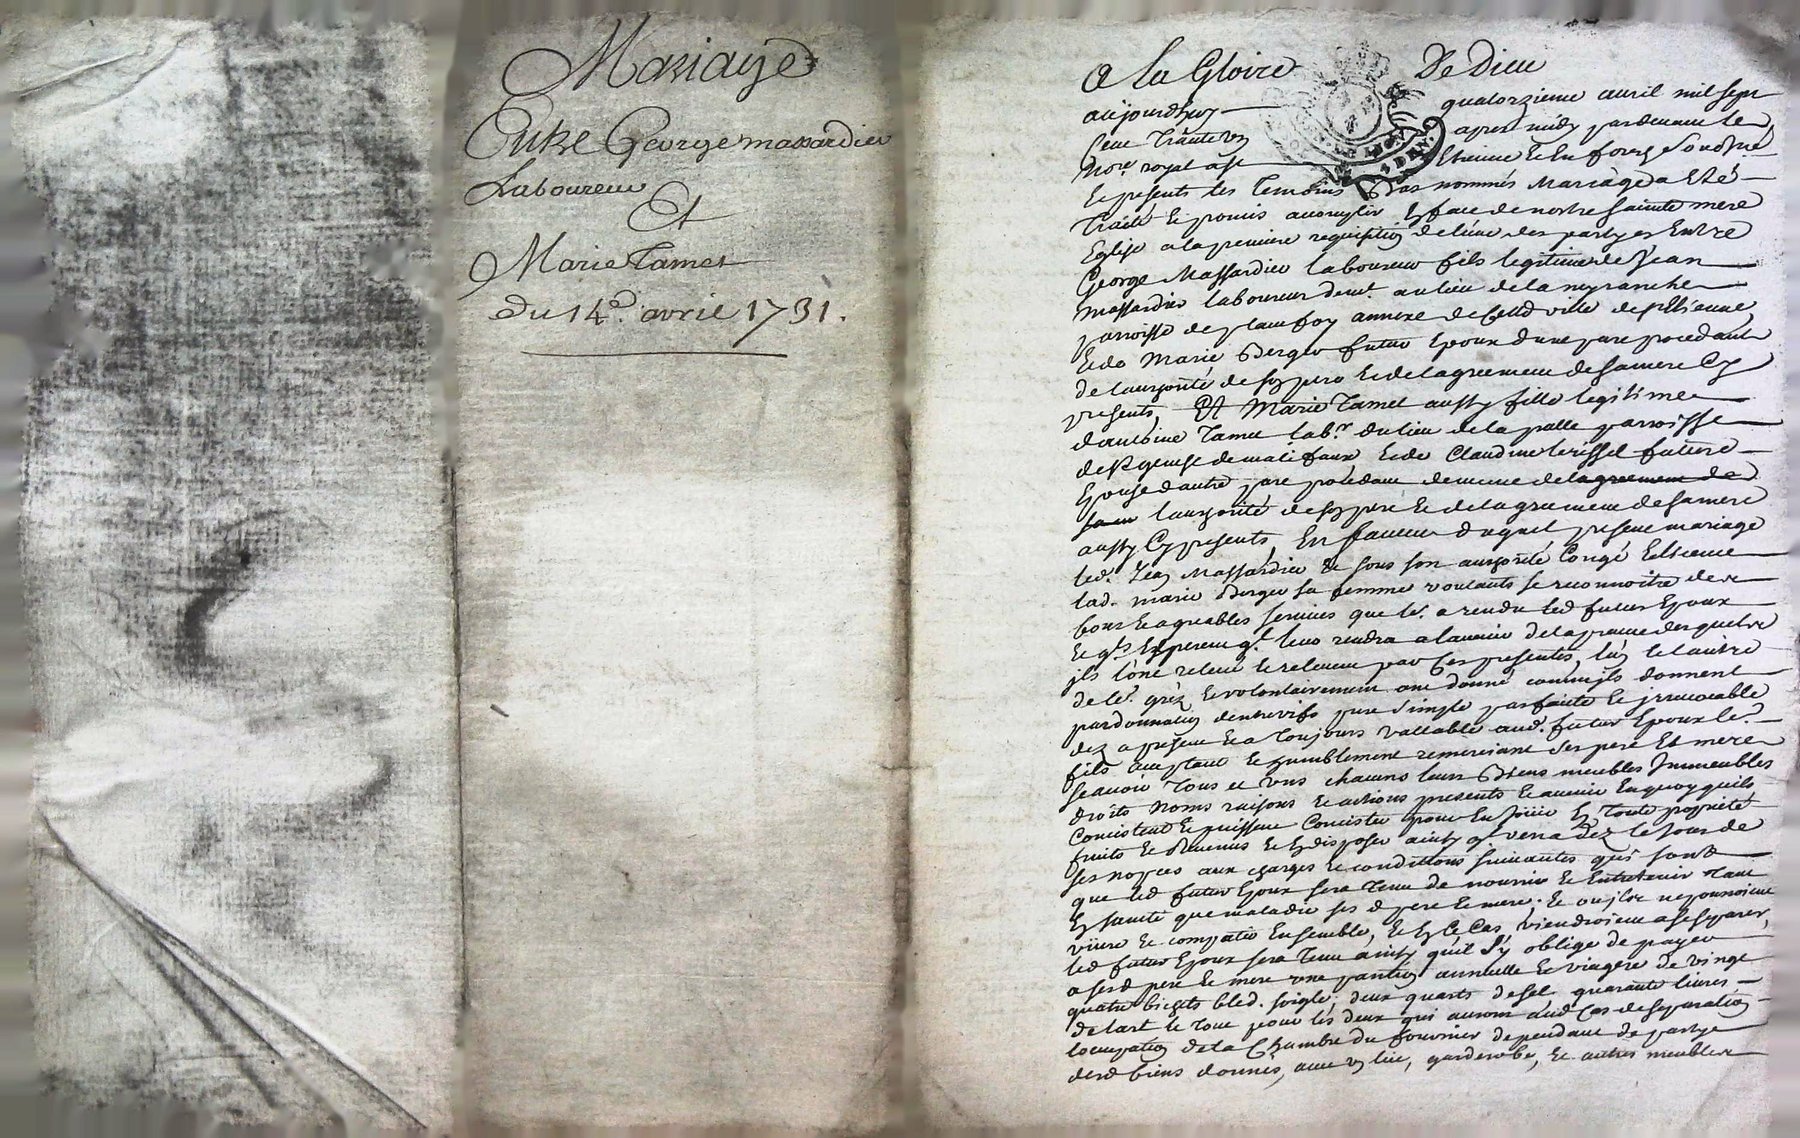 Mariage
Entre George massardier
Laboureur
Et
Marie Tamet
Du 14e. avril 1731.
A la Gloire De Dieu
aujourdhuy quatorzieme avril mil sept
Cent Trente un apres midy pardevant le
No.re royal a St Etienne Et En forez Soussigné
Et presents les Temoins Bas nommés Mariage a Eté
Traité Et promis accomplir En face de nostre Sainte mere
Eglise a la premiere requisition de l'une des partyes Entre
George Massardier laboureur fils legitime de Jean
Massardier laboureur demt. au lieu de la
parroisse de planfoy annexe de Cette ville de St Etienne
Et de Marie Berger futur Epoux d'une part procedant
de l'authorité de son pere Et de l'agreement de sa mere Cy
presents, Et Marie Tamet aussy fille legitime
d'anthoine Tamet lab.r du lieu de la palle parroisse
de St genest de malifaux Et de Claudine future
Epouse d'autre part procedant de meme de l'agreement de
sa m l'authorité de son pere Et de l'agreement de sa mere
aussy Cy presents, En faveur duquel present mariage
led. Jean Massardier Et sous son authorité Congé Et licence
lad. marie Berger sa femme voulants se reconnoitre des
bons Et agreables services que le.r a rendu led futur Epoux
Et qls Esperent ql. leur rendra a l'avenir de la preuve desquels
ils l'ont relevé Et relevent par Ces presentes, l'un Et l'autre
de le.r grez Et volontairement ont donné comme ils donnent
par donnation d'entrevifs pure simple parfaite Et irrevocable
dez a present Et a Toujours vallable aud. futur Epoux le.r
fils acceptant Et humblement remerciant ses pere Et mere
scavoir Tous et Uns chacuns leurs Biens meubles Immeubles
droits Noms raisons Et actions presents Et avenir En quoy qu'ils
Concistent Et puissent Concister pour En Jouir En Toute proprieté
fruits Et Revenus Et En disposer ainsy ql verra dez le Jour de
ses nopces aux charges Et conditions suivantes qui sont
que led futur Epoux sera Tenu de nourrir Et Entretenir Tant
En santé que maladie ses d pere Et mere. Et ou ils ne pourroient
vivre Et compatir Ensemble, Et En Ce Cas, viendroient a se separer,
led futur Epoux sera Tenu ainsy qu'il S'y oblige de payer
a sesd pere Et mere une pantion annuelle Et viagere de vingt
quatre bichets bled. soigle, deux quarts de sel quarante livres
de lart le Tout pour les deux qui auront aud Cas de separation
l'occupation de la Chambre du fournier dependant de partye
desd biens donnés, avec un lict, garderobe, Et autres meubles